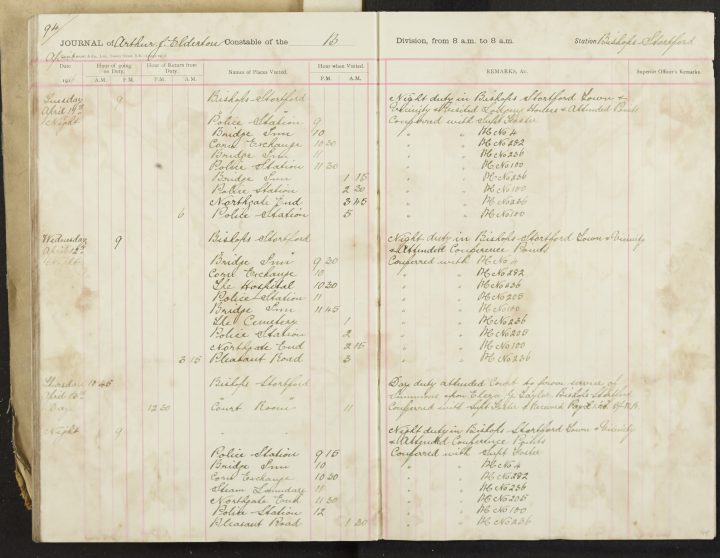 94
JOURNAL of Arthur J. Elderton Constable of the B Division, from 8 a.m. to 8 a.m. Station Bishops-Stortford
Date Hour of going on Duty. Hour of Return from Duty. Names of Places Visited. Hour when Visited. REMARKS, &c. Superior Officer's Remarks.
191 A.M. P.M. P.M. A.M. P.M. A.M.
Tuesday 9 Bishops-Stortford Night duty in Bishops Stortford Town &
April Vicinity & Visited Lodging Houses & Attended Points
Night Police Station 9 Conferred with Supt Foster
Bridge Inn 10 " " PC No 4
Corn Exchange 10 30 " " PC No 282
Bridge Inn 11 " " PC No 236
Police Station 11 30 " " PC No 100
Bridge Inn 1 15 " " PC No 236
Police Station 2 30 " " PC No 100
Northgate End 3 45 " " PC No 236
6 Police Station 5 " " PC No 100
Wednesday 9 Bishops Stortford Night duty in Bishops Stortford Town & Vicinity
April & Attended Conference Points
Night Bridge Inn 9 30 Conferred with PC No 4
Corn Exchange 10 " " PC No 282
The Hospital 10 30 " " PC No 236
Police Station 11 " " PC No 205
Bridge Inn 11 45 " " PC No 100
The Cemetery 1 " " PC No 236
Police Station 2 " " PC No 205
Northgate End 2 15 " " PC No 100
3 15 Pleasant Road 3 " " PC No 236
Thursday 10 45 Bishops Stortford Day duty attended Court to prove service of
April Summons upon Taylor Bishops Stortford
Day 12 30 "Court Room" 11 Conferred with Supt Foster & Received Pay
Night 9 " " Night duty in Bishops Stortford Town & Vicinity
& Attended Conference Points
Police Station 9 15 Conferred with Supt Foster
Bridge Inn 10 " " PC No 4
Corn Exchange 10 30 " " PC No 282
Steam Laundry 11 " " PC No 236
Northgate End 11 30 " " PC No 205
Police Station 12 " " PC No 100
Pleasant Road 1 30 " " PC No 236